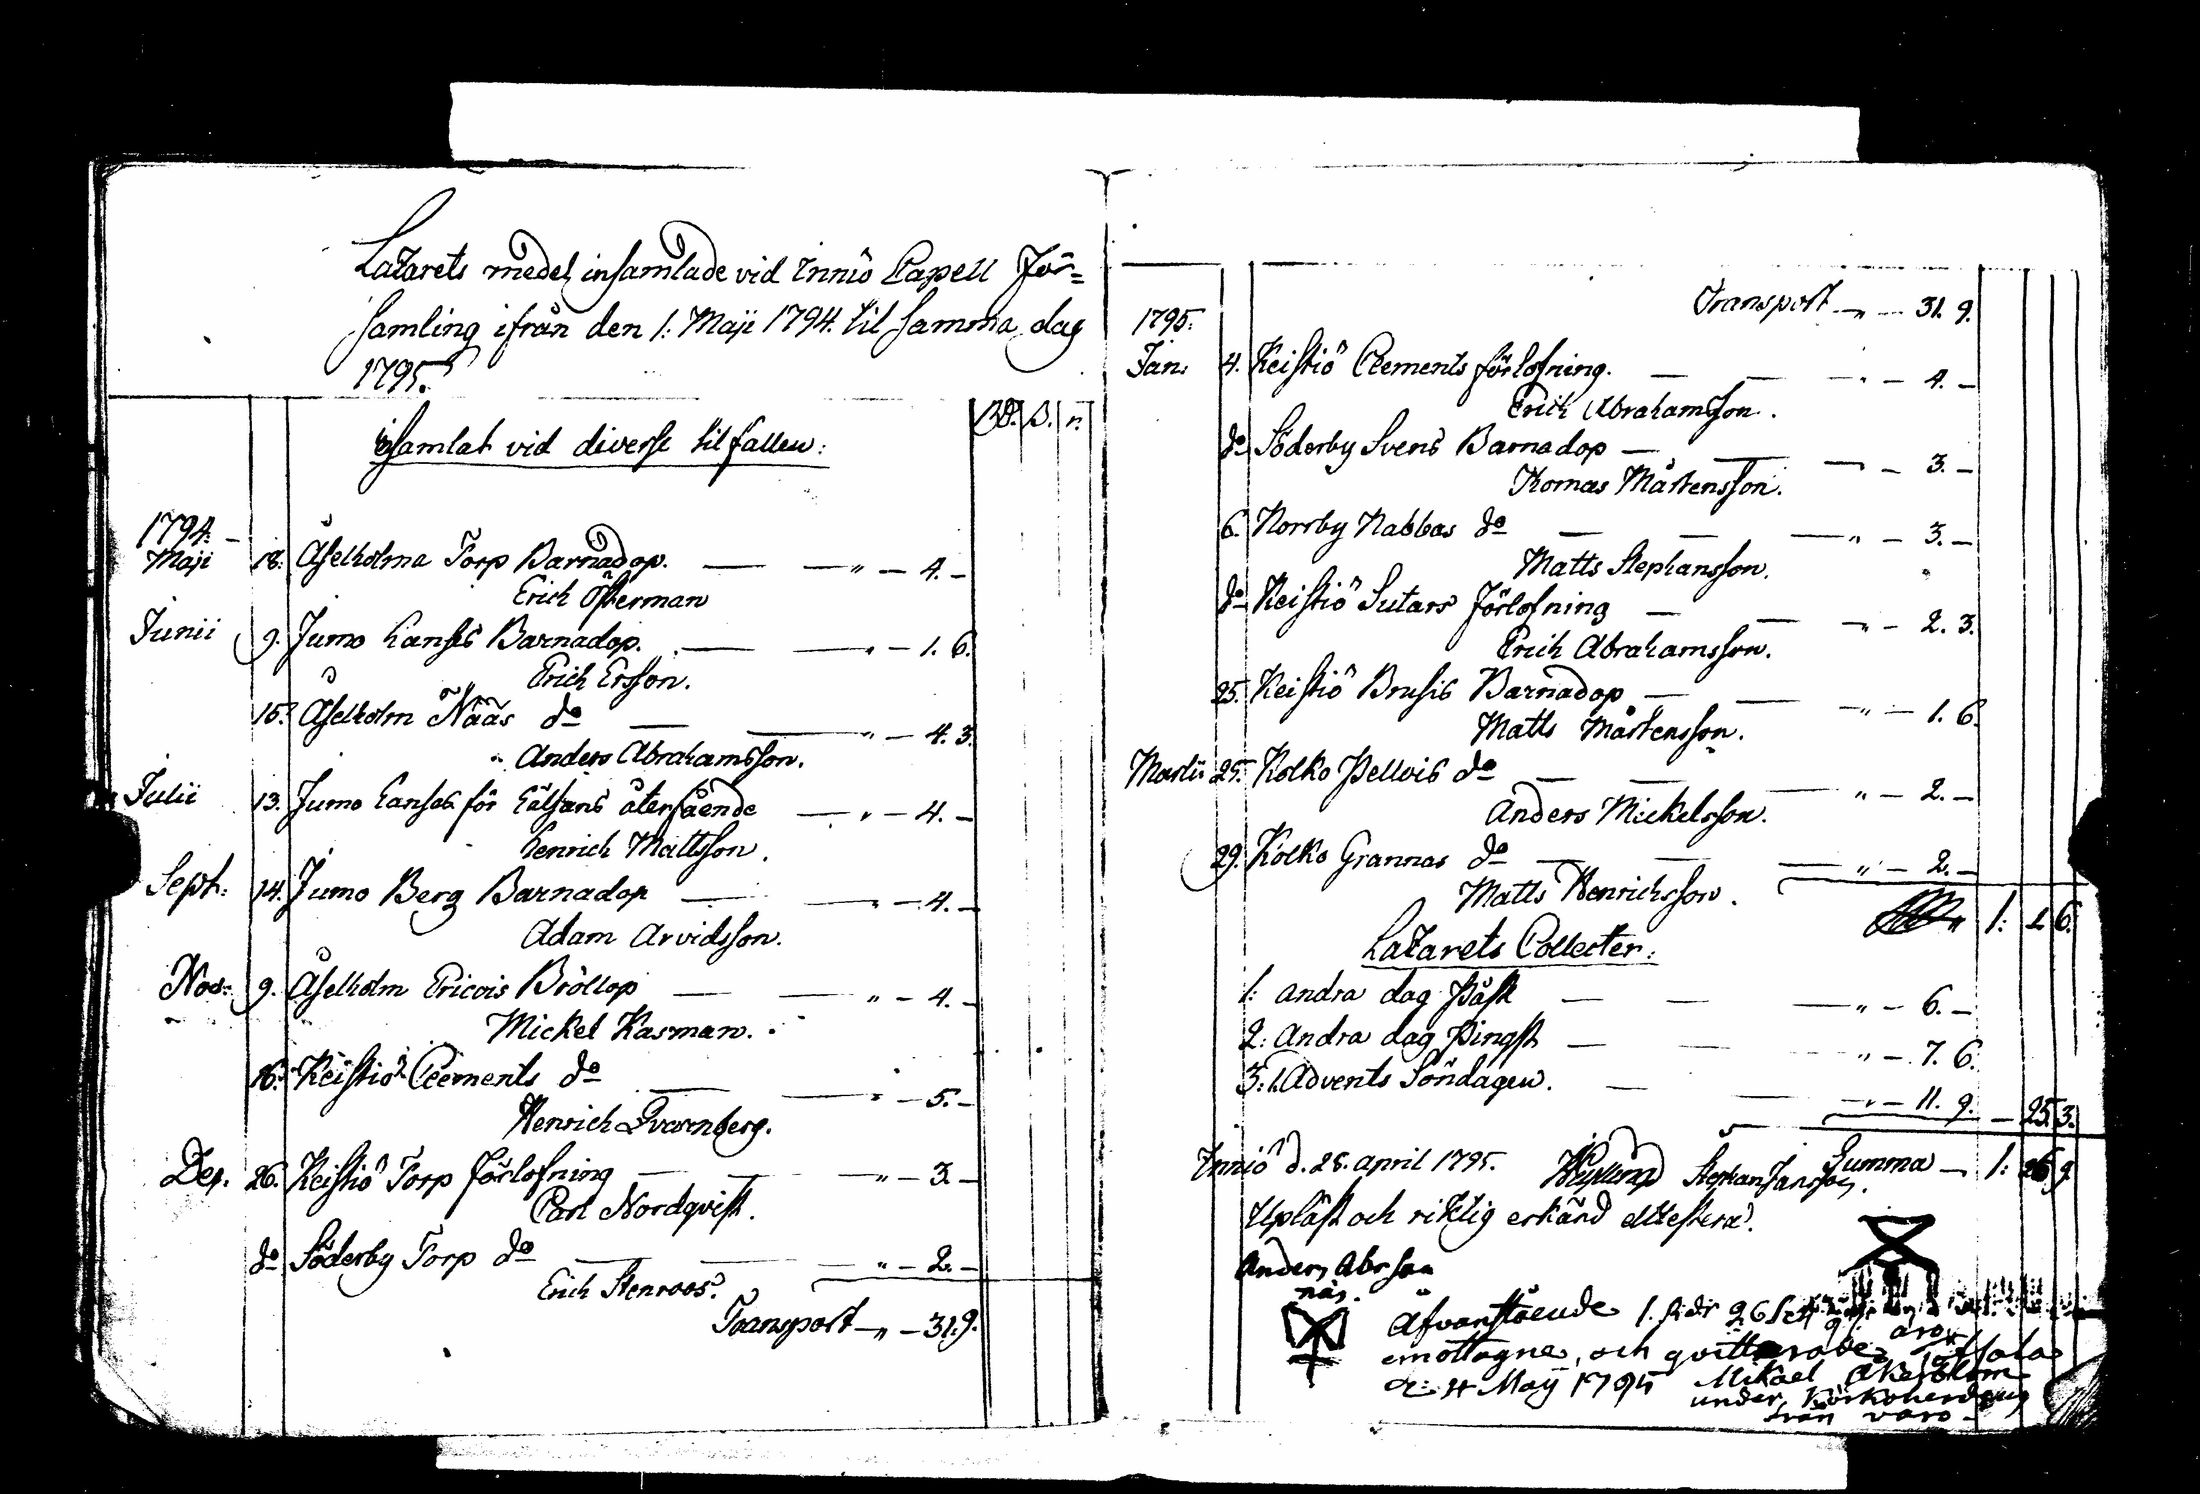 Lazarets medel insamlade vid Innio Capell För=
samling ifrån den 1: Maji 1794. til samma dag
1795.
Rd. s. r.
insamlat vid diverse tilfällen:
1794.
Maji 18. Åselholma Torp Barnadop. — — " — 4. —
Erich Österman
Junii 9. Jumo Hanses Barnadop. — — " — 1. 6.
Erich Ersson.
15. Åselholm Nääs do — — " — 4. 3.
Anders Abrahamsson.
Julii 13. Jumo Hanses för hälsans återfående — " — 4. —
Henrich Mattsson.
Sept. 14. Jumo Berg Barnadop — — " — 4. —
Adam Arvidsson.
Nov. 9. Åselholm Ericvis Bröllop — — " — 4. —
Mickel Kasman.
16. Keistiö Clements do — — " — 5. —
Henrich Qvarnberg.
Dec. 26. Keistiö Torp förlofning — — " — 3. —
Carl Nordqvist.
do Söderby Torp do — — — " — 2. —
Erich Stenroos.
Transport — " — 31. 9.
Transport — " — 31. 9.
1795.
Jan. 4. Keistiö Clements förlofning. — — " — 4. —
Erich Abrahamsson.
do Söderby Svens Barnadop — — — — 3. —
Thomas Mårtensson.
6. Norrby Nabbas do — — — " — 3. —
Matts Stephansson.
do Keistiö Sutars förlofning — — " — 2. 3.
Erich Abrahamsson.
25. Keistiö Brusis Barnadop — — " — 1. 6.
Matts Mårtensson.
Martii 25. Kolko Pellvis do — — — " — 2. —
Anders Mickelsson.
29. Kolko Grannas do — — — " — 2. —
Matts Henrichsson.
" 1: 1. 6.
Lazarets Collecter:
1: andra dag Påsk — — — " — 6. —
2: Andra dag Pingst — — " — 7. 6.
3: 1. Advents Söndagen. — — " — 11. 9. — 25. 3.
Summa — 1: 26. 9.
Inniö d. 28. april 1795. Stephan Jansson.
Upläst och riktig erkänd attestera.
Anders Abrson
näs.
Åfvanstående 1. Rdr 26 s 9 r äro
emottagne, och qvitterade
d: 4 Maij 1795 Mikael Åkerblom
under Kürkoherdens
från varo